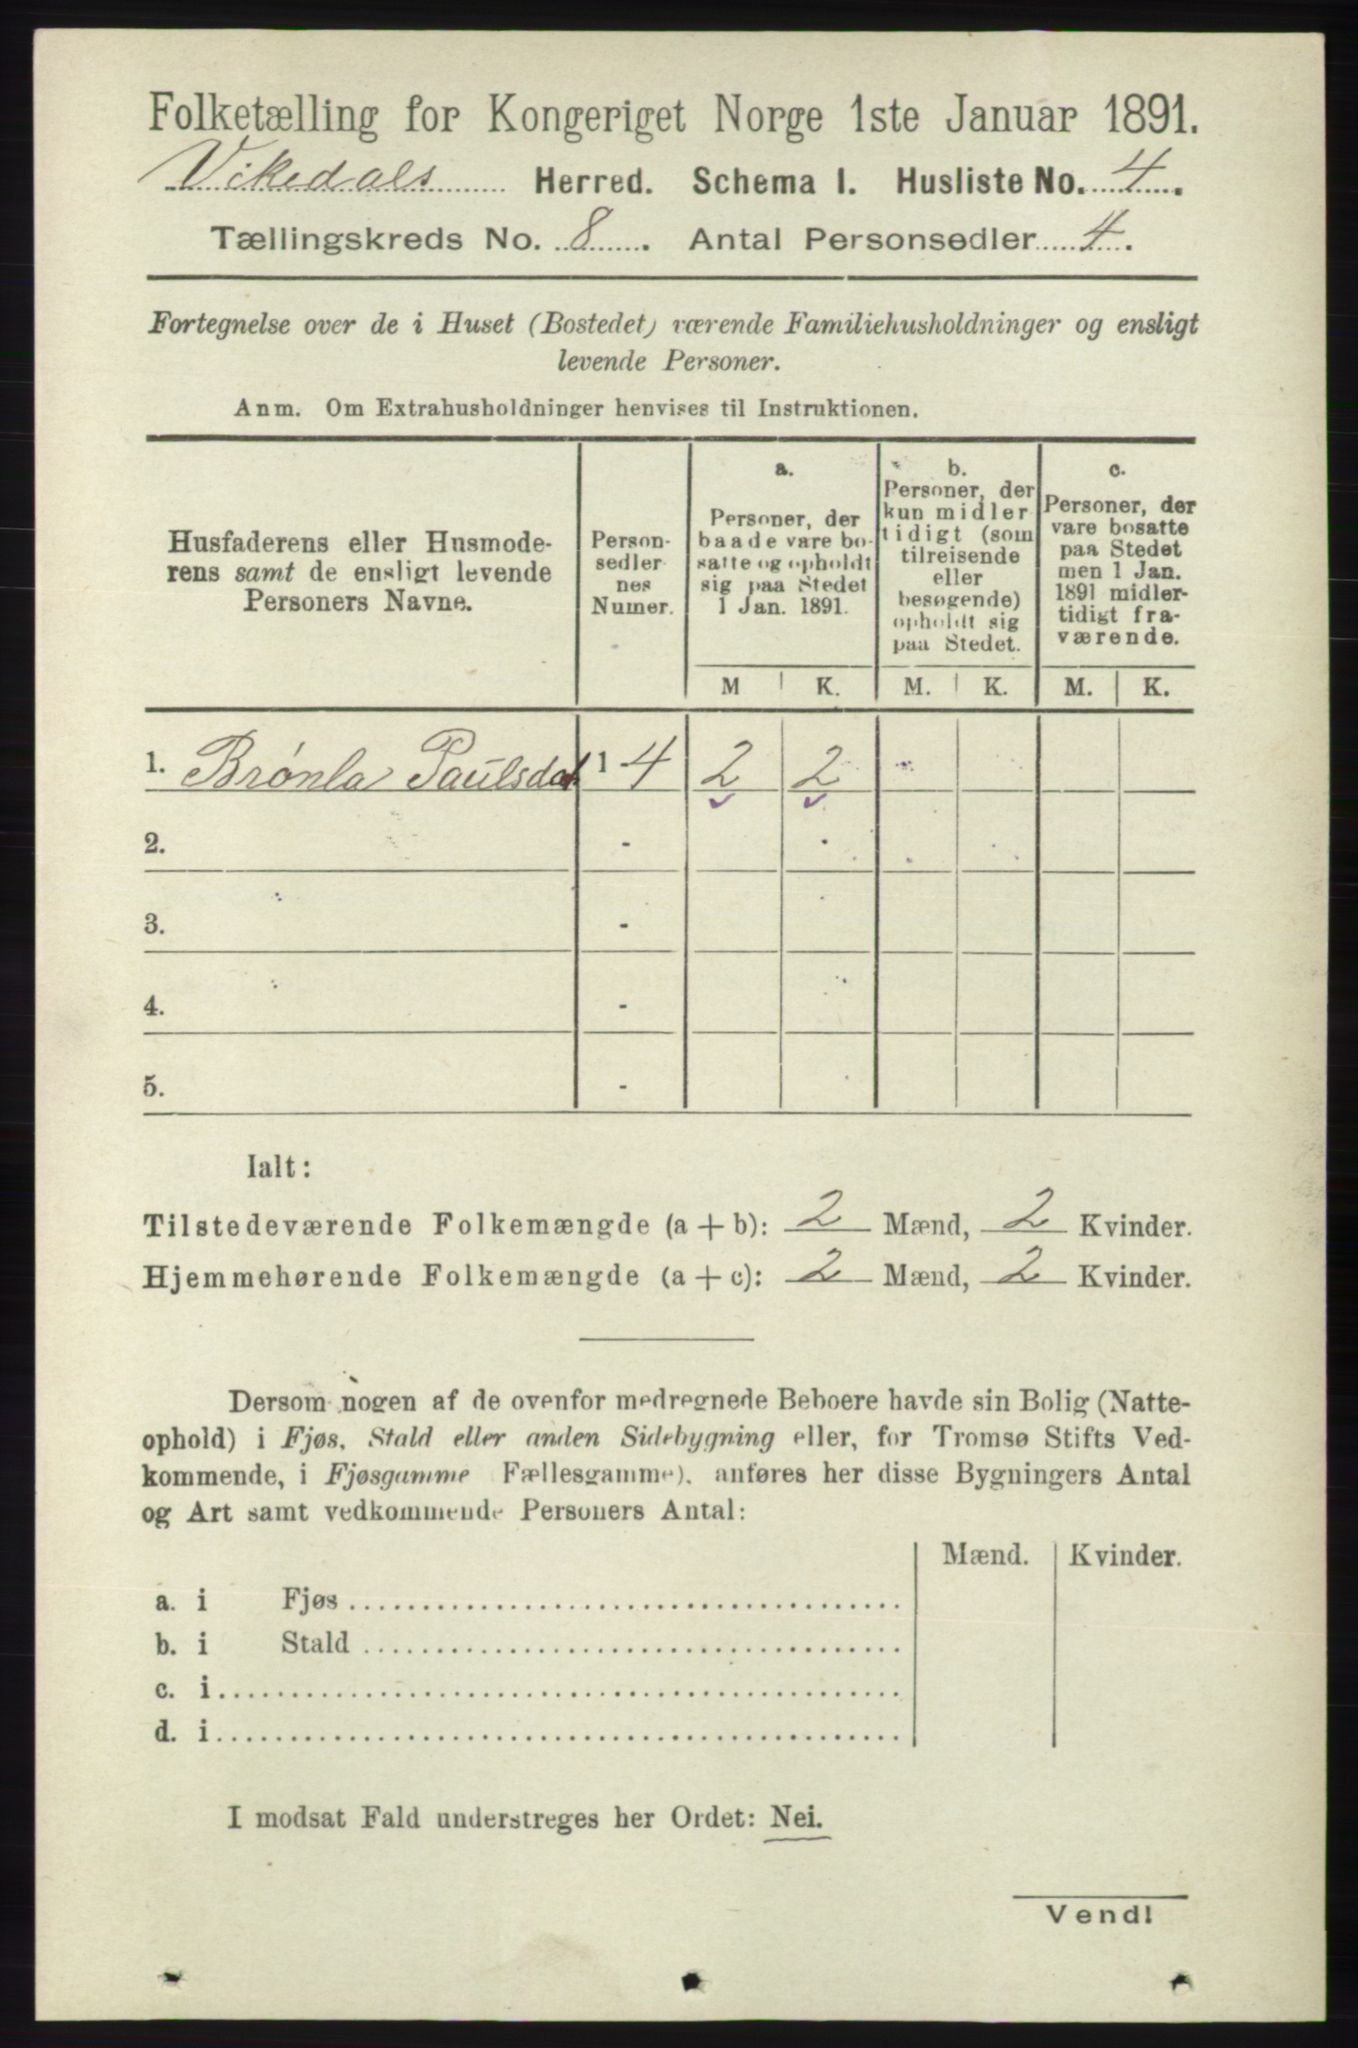 Folketælling for Kongeriget Norge 1ste Januar 1891.
Vikedals Herred. Schema I. Husliste No. 4.
Tællingskreds No. 8. Antal Personsedler 4.
Fortegnelse over de i Huset (Bostedet) værende Familiehusholdninger og ensligt
levende Personer.
Anm. Om Extrahusholdninger henvises til Instruktionen.
Husfaderens eller Husmode-
rens samt de ensligt levende
Personers Navne.
Person-
sedler
nes
Numer.
a.
Personer, der
baade vare bo-
satte og opholdt
sig paa Stedet
1 Jan. 1891.
b.
Personer, der
kun midler
tidigt (som
tilreisende
eller
besøgende)
opholdt sig
paa Stedet.
c.
Personer, der
vare bosatte
paa Stedet
men 1 Jan.
1891 midler-
tidigt fra-
værende.
M K. M. K. M. K.
1. Brønla Paulsdat 1-4 2 2
2. -
3. -
4. -
5. -
Ialt:
Tilstedeværende Folkemængde (a + b): 2 Mænd, 2 Kvinder.
Hjemmehørende Folkemængde (a + c): 2 Mænd, 2 Kvinder.
Dersom nogen af de ovenfor medregnede Beboere havde sin Bolig (Natte-
ophold) i Fjøs, Stald eller anden Sidebygning eller, for Tromsø Stifts Ved-
kommende, i Fjøsgamme Fællesgamme), anføres her disse Bygningers Antal
og Art samt vedkommende Personers Antal:
Mænd. Kvinder.
a. i Fjøs
b. i Stald
c. i
d. i
I modsat Fald understreges her Ordet: Nei.
Vend!